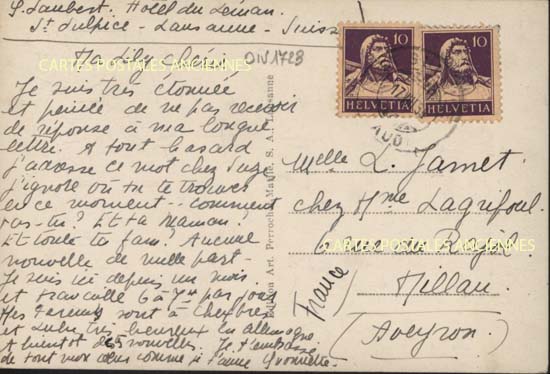 Hôtel du Léman.
St Sulpice - Lausanne - Suisse
Ma Lily chérie
DIV1728
CARTES POSTALES ANCIENNES
Je suis très étonnée
et peinée de ne pas recevoir
de réponse à ma longue
lettre. A tout hasard
j'adresse ce mot chez Suze
j'ignore où tu te trouves
en ce moment - comment
vas-tu? Et ta Maman?
Et toute ta fam? Aucune
nouvelle de nulle part -
Je suis ici depuis un mois
et travaille 6 à 7 par jour
Mes parents sont à Chexbres
et très heureux en Allemagne
A bientôt des nouvelles. Je t'embrasse
de tout mon cœur comme je t'aime Yvonnette.
Edition Art. Perrochet-Matile, S. A., Lausanne
10 10
HELVETIA HELVETIA
Melle L. Jamet
chez Mme Lagrifoul
CARTES POSTALES ANCIENNES
Millau
(Aveyron)
France